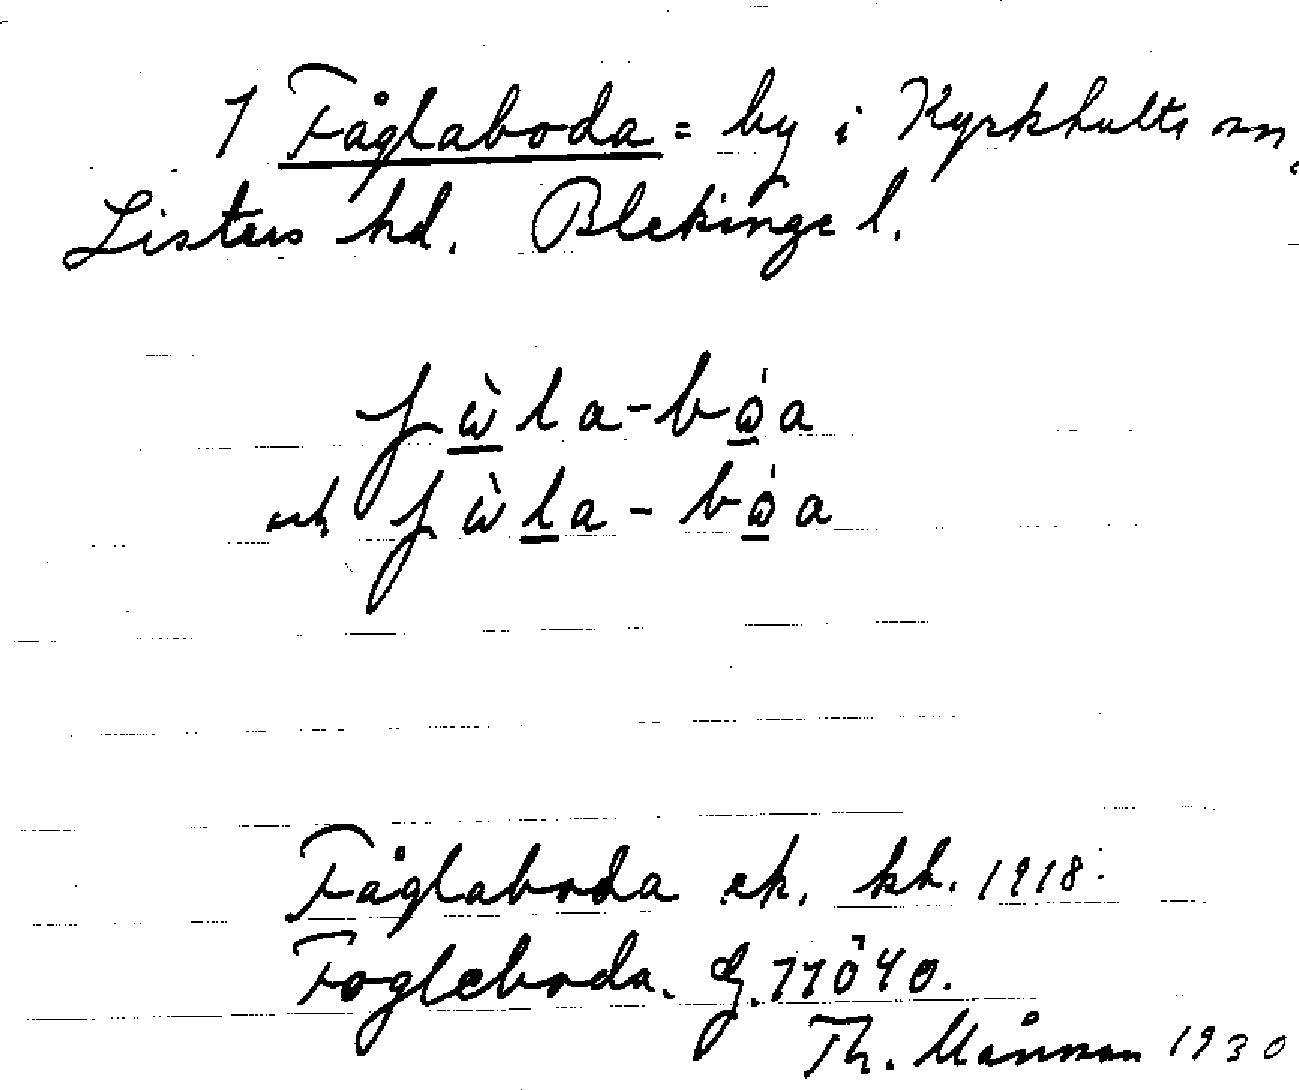 1 Fåglaboda = by i Kyrkhults sn,
Listers hd. Blekinge l.
fὼla-bǫ́a
och fὼla-bǫ́a
Fåglaboda ek. kh. 1918.
Fogleboda. G. 11ö40.
Th. Månsson 1930